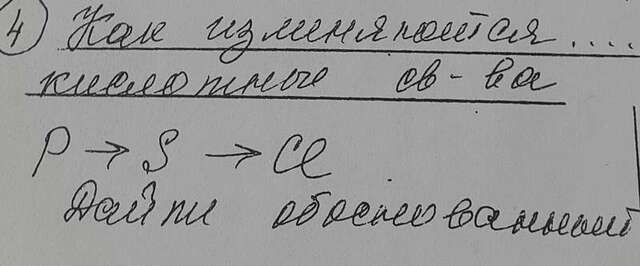 4) Как изменяются....
кислотные св-ва
P → S → Cl
Дайти обоснованный